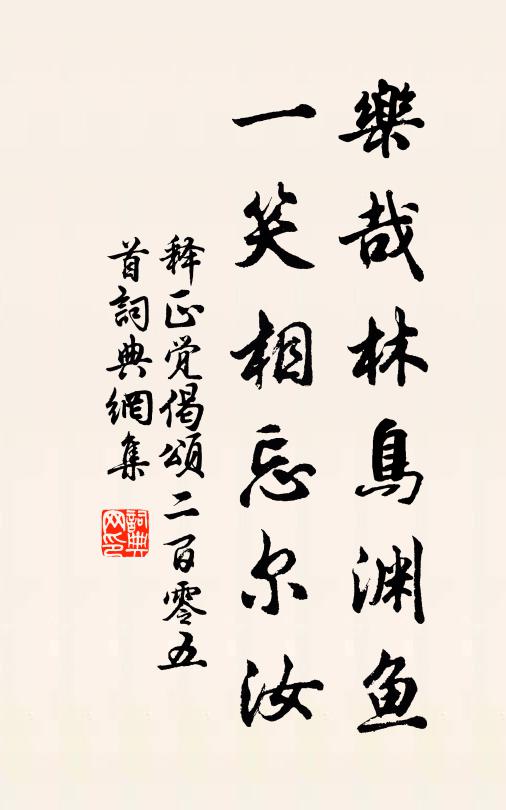 樂哉林鳥渊鱼
一笑相忘尔汝
释正觉偈頌二百零五
首詞典網集
詞典
网印